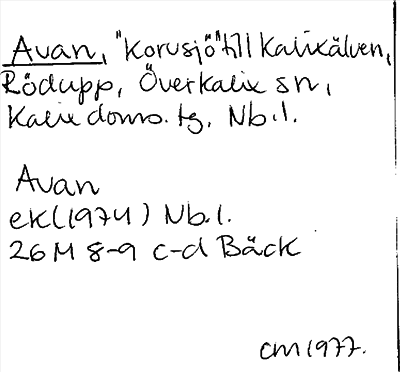 Avan, "Korusjö" till Kalixälven,
Rödupp, Överkalix sn,
Kalix doms. tg, Nb.l.
Avan
ek (1974) Nb.l.
26 M 8-9 c-d Bäck
CM 1977.